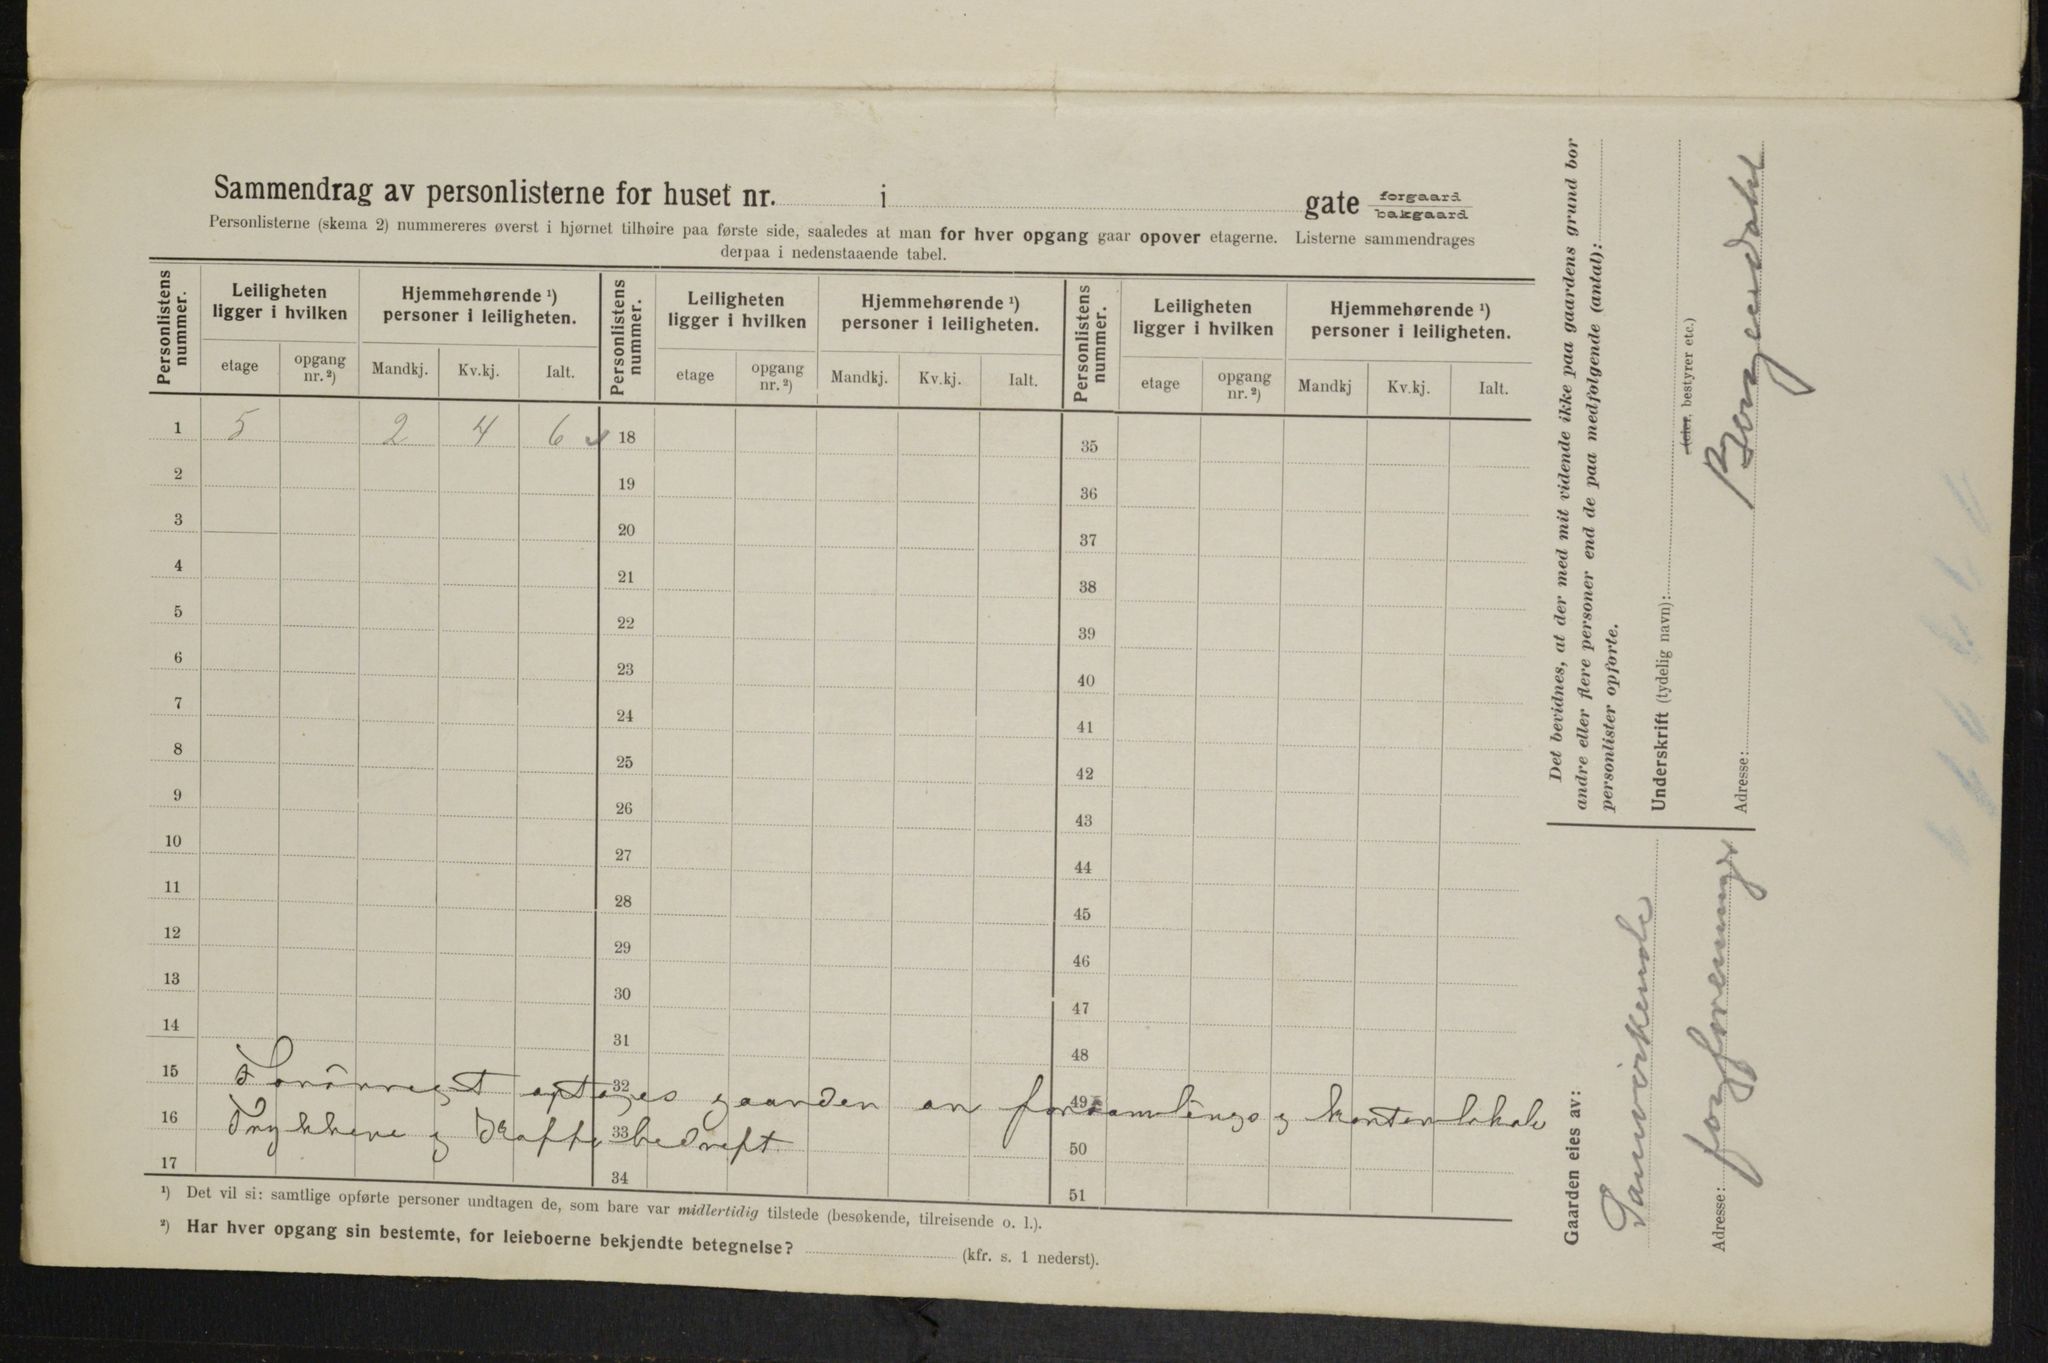 Sammendrag av personlisterne for huset nr. i gate forgaard bakgaard
Personlisterne (skema 2) nummereres øverst i hjørnet tilhøire paa første side, saaledes at man for hver opgang gaar opover etagerne. Listerne sammendrages
derpaa i nedenstaaende tabel.
Personlistens nummer. Leiligheten ligger i hvilken Hjemmehørende ¹) personer i leiligheten. Personlistens nummer. Leiligheten ligger i hvilken Hjemmehørende ¹) personer i leiligheten. Personlistens nummer. Leiligheten ligger i hvilken Hjemmehørende ¹) personer i leiligheten.
etage opgang nr. ²) Mandkj. Kv.kj. Ialt. etage opgang nr. ²) Mandkj. Kv.kj. Ialt. etage opgang nr. ²) Mandkj Kv.kj. Ialt.
1 5 2 4 6 18 35
2 19 36
3 20 37
4 21 38
5 22 39
6 23 40
7 24 41
8 25 42
9 26 43
10 27 44
11 28 45
12 29 46
13 30 47
14 31 48
15 32 49
Forövregt optages gaarden an forsamlings g kontorlokale
16 33 50
Trykkeri g Kaffebedrift
17 34 51
¹) Det vil si: samtlige opførte personer undtagen de, som bare var midlertidig tilstede (besøkende, tilreisende o. l.).
²) Har hver opgang sin bestemte, for leieboerne bekjendte betegnelse? (kfr. s. 1 nederst).
Det bevidnes, at der med mit vidende ikke paa gaardens grund bor
andre eller flere personer end de paa medfølgende (antal):
personlister opførte.
Underskrift (tydelig navn):
(eier, bestyrer etc.)
Adresse:
Gaarden eies av:
Samvirkende
Adresse:
fagforeninger